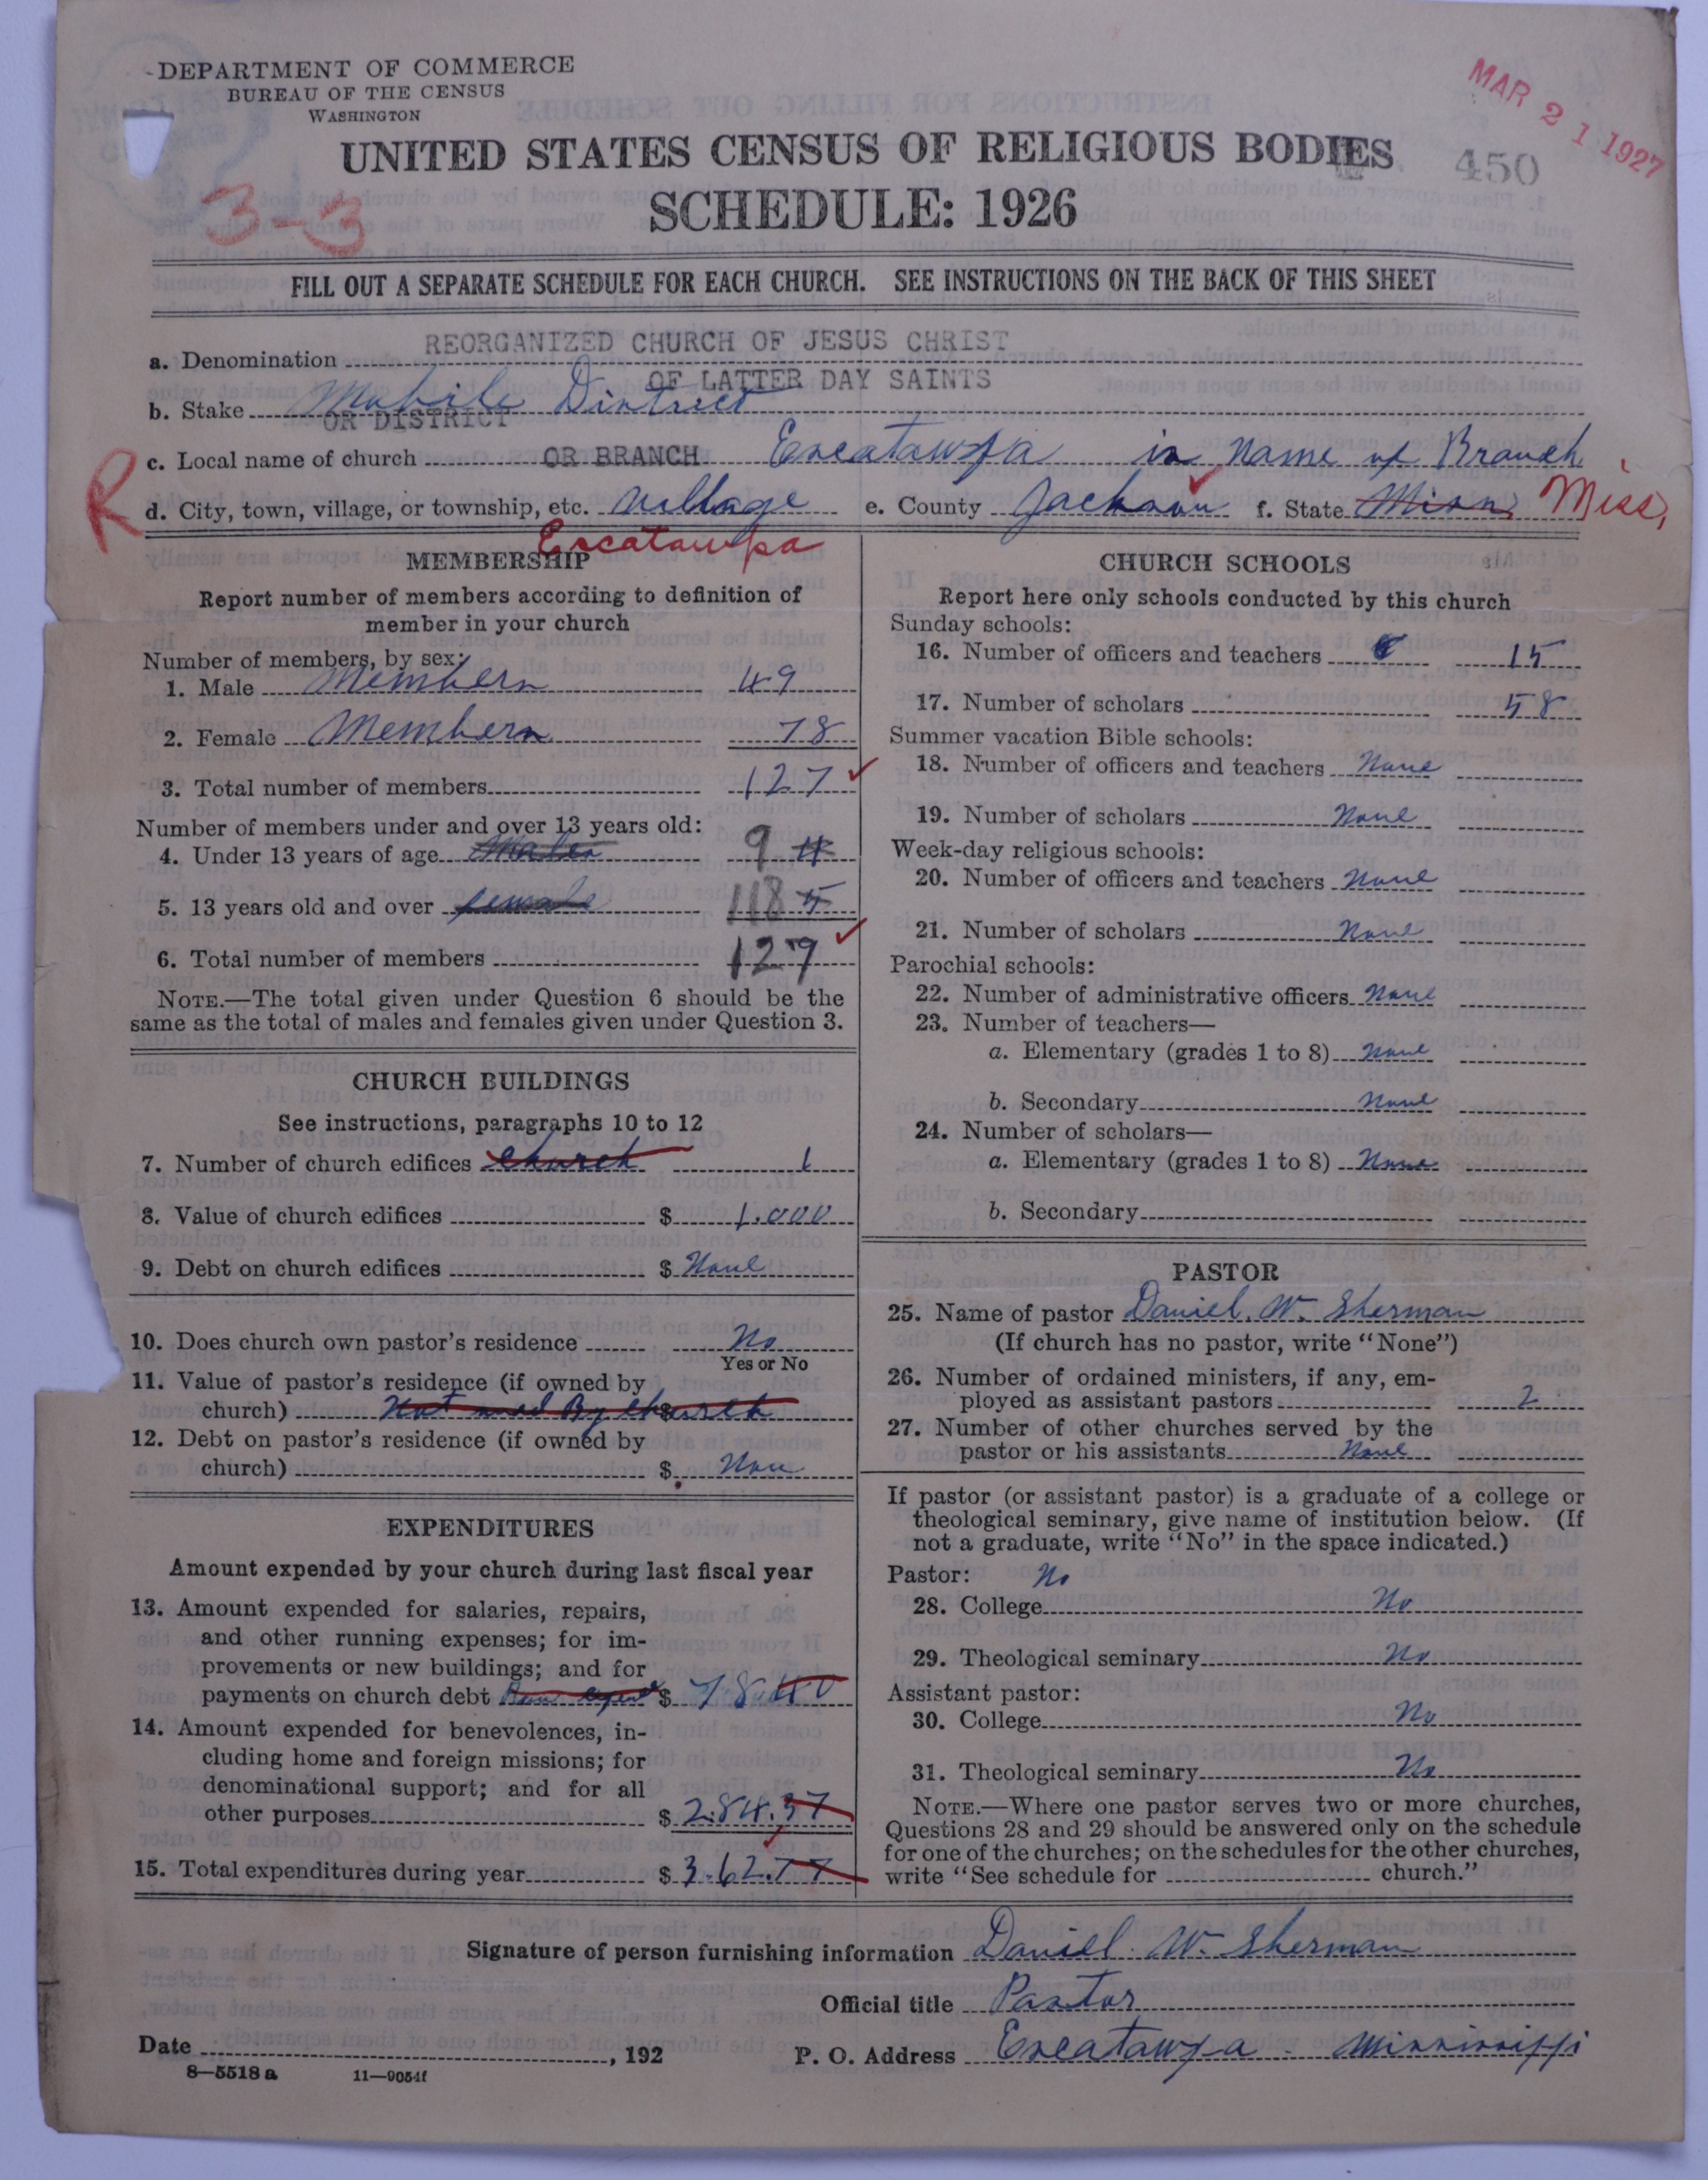 DEPARTMENT OF COMMERCE
BUREAU OF THE CENSUS
WASHINGTON
MAR 21 1927
UNITED STATES CENSUS OF RELIGIOUS BODIES
450
3-3
SCHEDULE: 1926
FILL OUT A SEPARATE SCHEDULE FOR EACH CHURCH. SEE INSTRUCTIONS ON THE BACK OF THIS SHEET
a. Denomination REORGANIZED CHURCH OF JESUS CHRIST
OF LATTER DAY SAINTS
b. Stake Mobile District
OR DISTRICT
c. Local name of church OR BRANCH Escatawpa is Name of Branch
R
d. City, town, village, or township, etc. village e. County Jackson f. State Miss, Miss,
Escatawpa
MEMBERSHIP
Report number of members according to definition of
member in your church
Number of members, by sex:
1. Male Members 49
2. Female Members 78
3. Total number of members 127
Number of members under and over 13 years old:
4. Under 13 years of age Males 9 4
5. 13 years old and over female 118 5
6. Total number of members 127
NOTE.—The total given under Question 6 should be the
same as the total of males and females given under Question 3.
CHURCH BUILDINGS
See instructions, paragraphs 10 to 12
7. Number of church edifices church 1
8. Value of church edifices $ 1.000
9. Debt on church edifices $ None
10. Does church own pastor's residence No
Yes or No
11. Value of pastor's residence (if owned by
church) Not By church $
12. Debt on pastor's residence (if owned by
church) $ Non
EXPENDITURES
Amount expended by your church during last fiscal year
13. Amount expended for salaries, repairs,
and other running expenses; for im-
provements or new buildings; and for
payments on church debt $ 78.40
14. Amount expended for benevolences, in-
cluding home and foreign missions; for
denominational support; and for all
other purposes $ 284.37
15. Total expenditures during year $ 362.77
CHURCH SCHOOLS
Report here only schools conducted by this church
Sunday schools:
16. Number of officers and teachers 15
17. Number of scholars 58
Summer vacation Bible schools:
18. Number of officers and teachers None
19. Number of scholars None
Week-day religious schools:
20. Number of officers and teachers None
21. Number of scholars None
Parochial schools:
22. Number of administrative officers None
23. Number of teachers—
a. Elementary (grades 1 to 8) None
b. Secondary None
24. Number of scholars—
a. Elementary (grades 1 to 8) None
b. Secondary
PASTOR
25. Name of pastor Daniel. W. Sherman
(If church has no pastor, write "None")
26. Number of ordained ministers, if any, em-
ployed as assistant pastors 2
27. Number of other churches served by the
pastor or his assistants None
If pastor (or assistant pastor) is a graduate of a college or
theological seminary, give name of institution below. (If
not a graduate, write "No" in the space indicated.)
Pastor: No
28. College No
29. Theological seminary No
Assistant pastor:
30. College No
31. Theological seminary No
NOTE.—Where one pastor serves two or more churches,
Questions 28 and 29 should be answered only on the schedule
for one of the churches; on the schedules for the other churches,
write "See schedule for church."
Signature of person furnishing information Daniel. W. Sherman
Official title Pastor
Date , 192 P. O. Address Escatawpa. Mississippi
8—5518 a 11—9054f